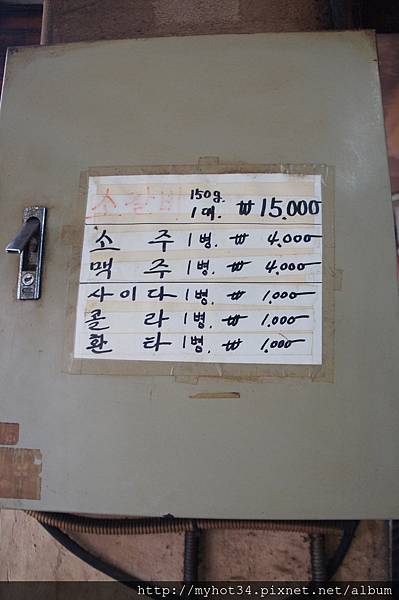 소갈비 150g. 1대. ₩ 15.000
소 주 1병. ₩ 4.000
맥 주 1병. ₩ 4.000
사이다 1병. ₩ 1.000
콜 라 1병. ₩ 1.000
환 타 1병. ₩ 1.000
http://myhot34.pixnet.net/album